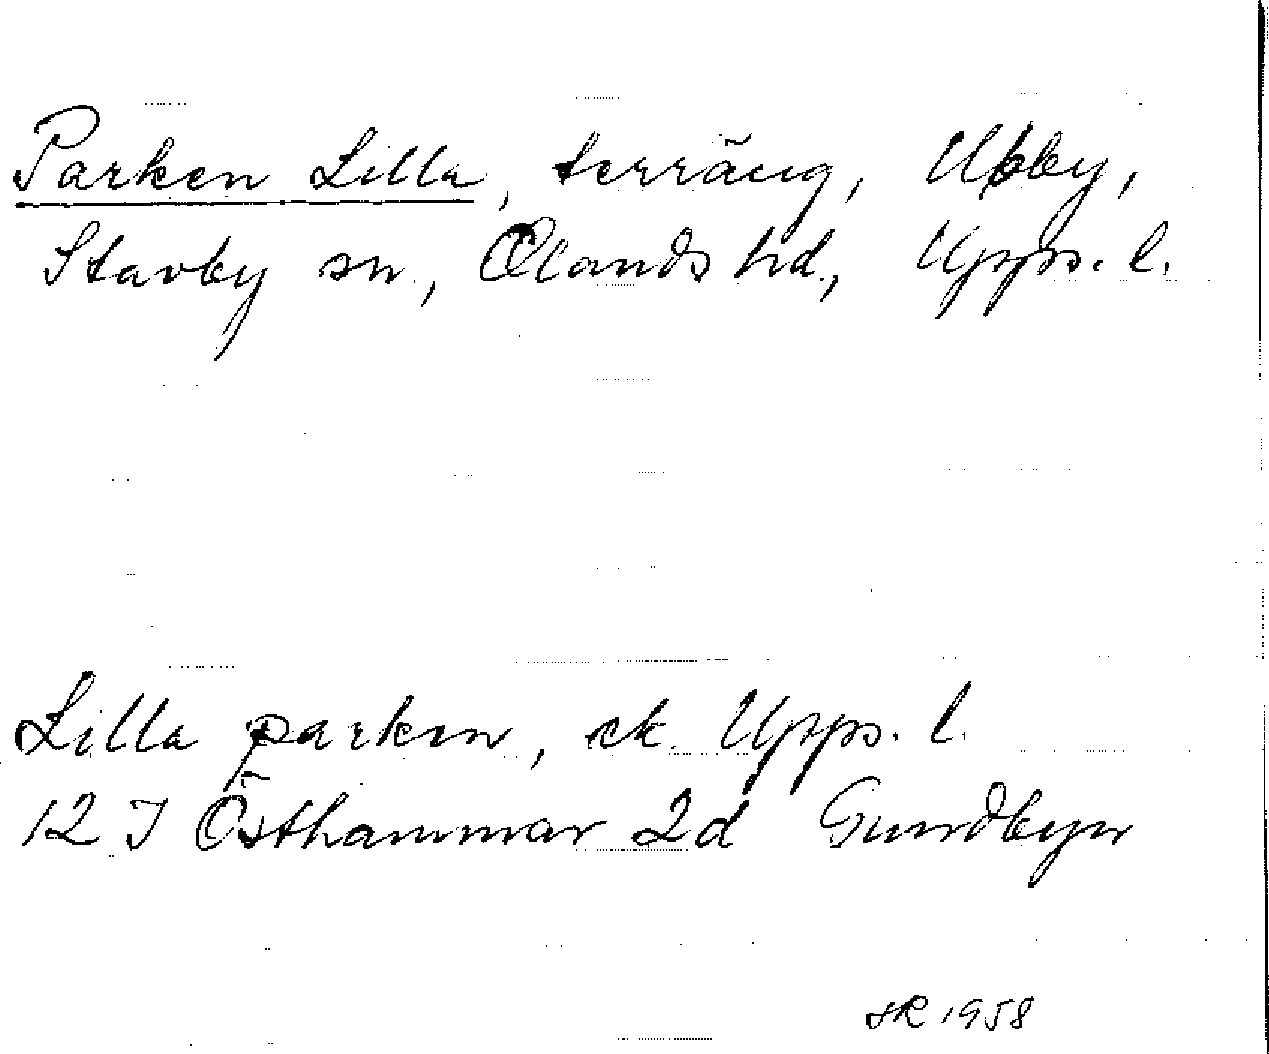 Parken Lilla, terräng, Ubby,
Stavby sn, Olands hd, Upps. l.
Lilla parken, ek. Upps. l.
12 I Östhammar 2d Gundbyn
SR 1958